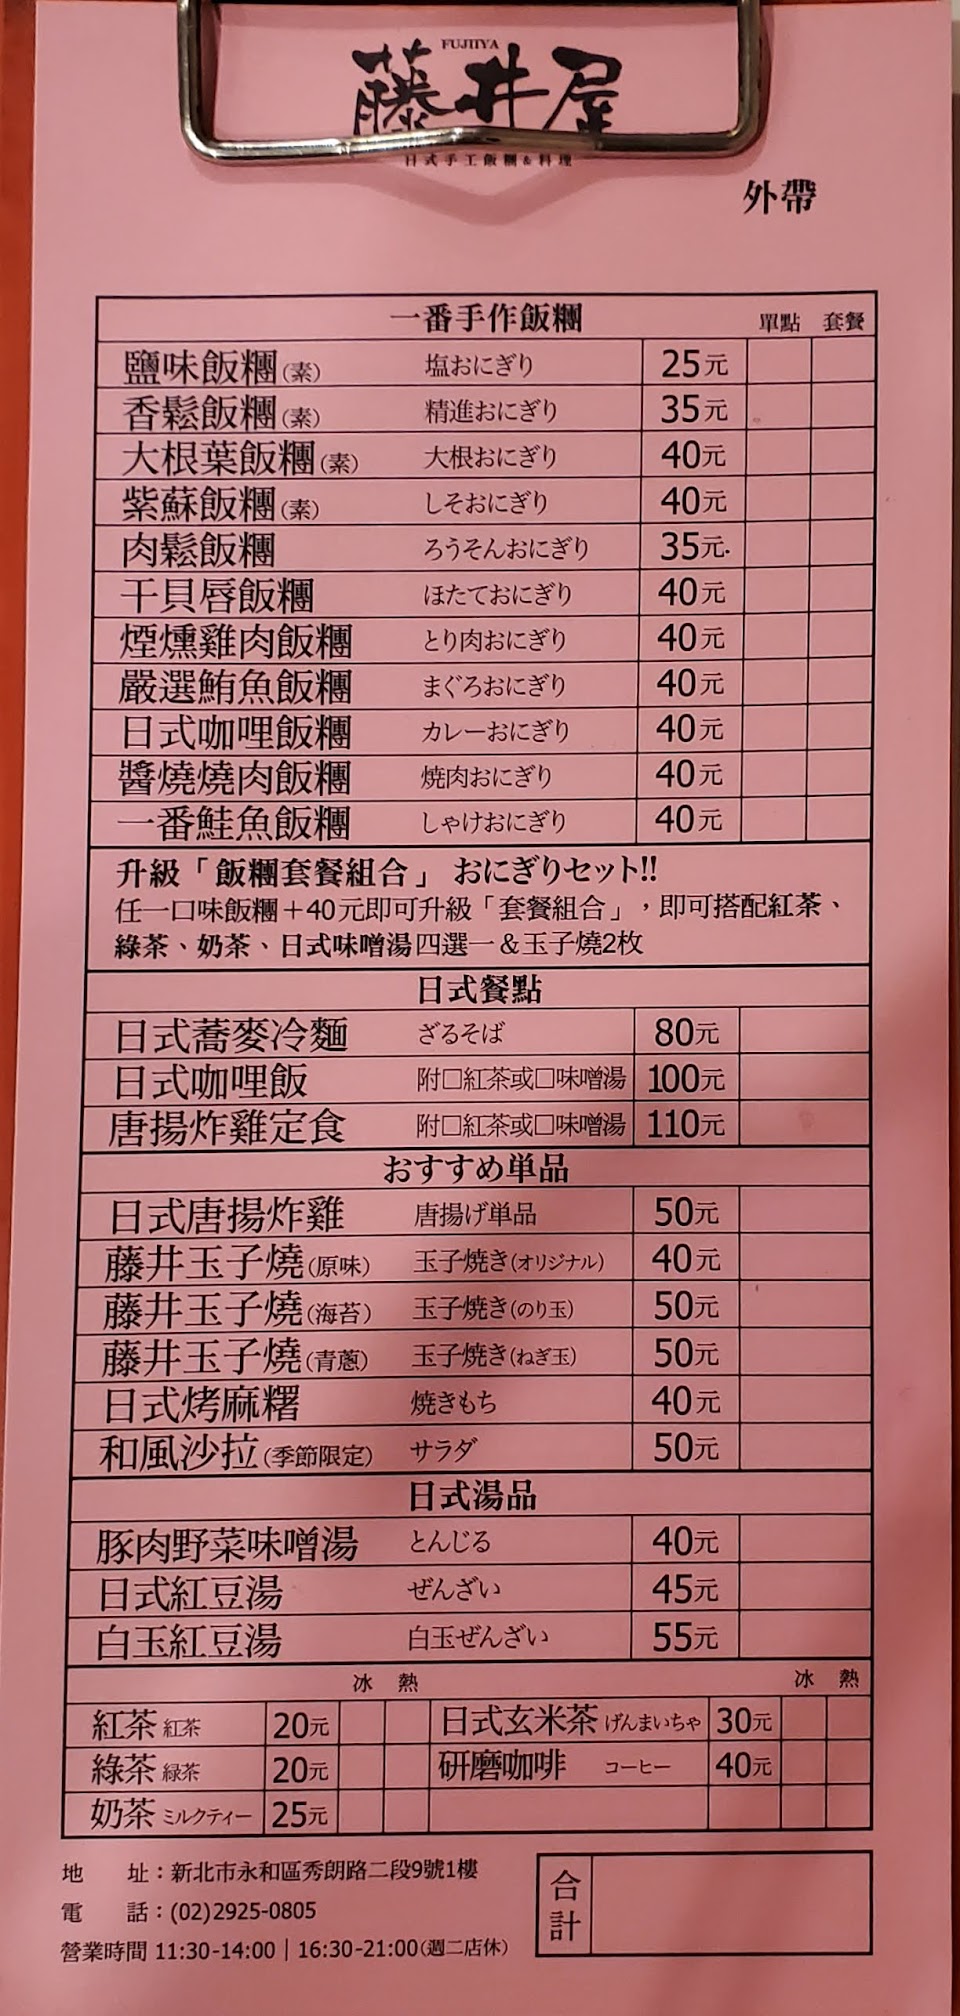 FUJIIYA
藤井屋
日式手工飯糰&料理
外帶
一番手作飯糰 單點 套餐
鹽味飯糰(素) 塩おにぎり 25元
香鬆飯糰(素) 精進おにぎり 35元
大根葉飯糰(素) 大根おにぎり 40元
紫蘇飯糰(素) しそおにぎり 40元
肉鬆飯糰 ろうそんおにぎり 35元
干貝唇飯糰 ほたておにぎり 40元
煙燻雞肉飯糰 とり肉おにぎり 40元
嚴選鮪魚飯糰 まぐろおにぎり 40元
日式咖哩飯糰 カレーおにぎり 40元
醬燒燒肉飯糰 焼肉おにぎり 40元
一番鮭魚飯糰 しゃけおにぎり 40元
升級「飯糰套餐組合」 おにぎりセット!!
任一口味飯糰+40元即可升級「套餐組合」，即可搭配紅茶、
綠茶、奶茶、日式味噌湯四選一&玉子燒2枚
日式餐點
日式蕎麥冷麵 ざるそば 80元
日式咖哩飯 附□紅茶或□味噌湯 100元
唐揚炸雞定食 附□紅茶或□味噌湯 110元
おすすめ単品
日式唐揚炸雞 唐揚げ単品 50元
藤井玉子燒(原味) 玉子焼き(オリジナル) 40元
藤井玉子燒(海苔) 玉子焼き(のり玉) 50元
藤井玉子燒(青蔥) 玉子焼き(ねぎ玉) 50元
日式烤麻糬 焼きもち 40元
和風沙拉(季節限定) サラダ 50元
日式湯品
豚肉野菜味噌湯 とんじる 40元
日式紅豆湯 ぜんざい 45元
白玉紅豆湯 白玉ぜんざい 55元
冰 熱 冰 熱
紅茶 紅茶 20元 日式玄米茶 げんまいちゃ 30元
綠茶 緑茶 20元 研磨咖啡 コーヒー 40元
奶茶 ミルクティー 25元
地 址：新北市永和區秀朗路二段9號1樓
電 話：(02)2925-0805
營業時間 11:30-14:00｜16:30-21:00(週二店休)
合計